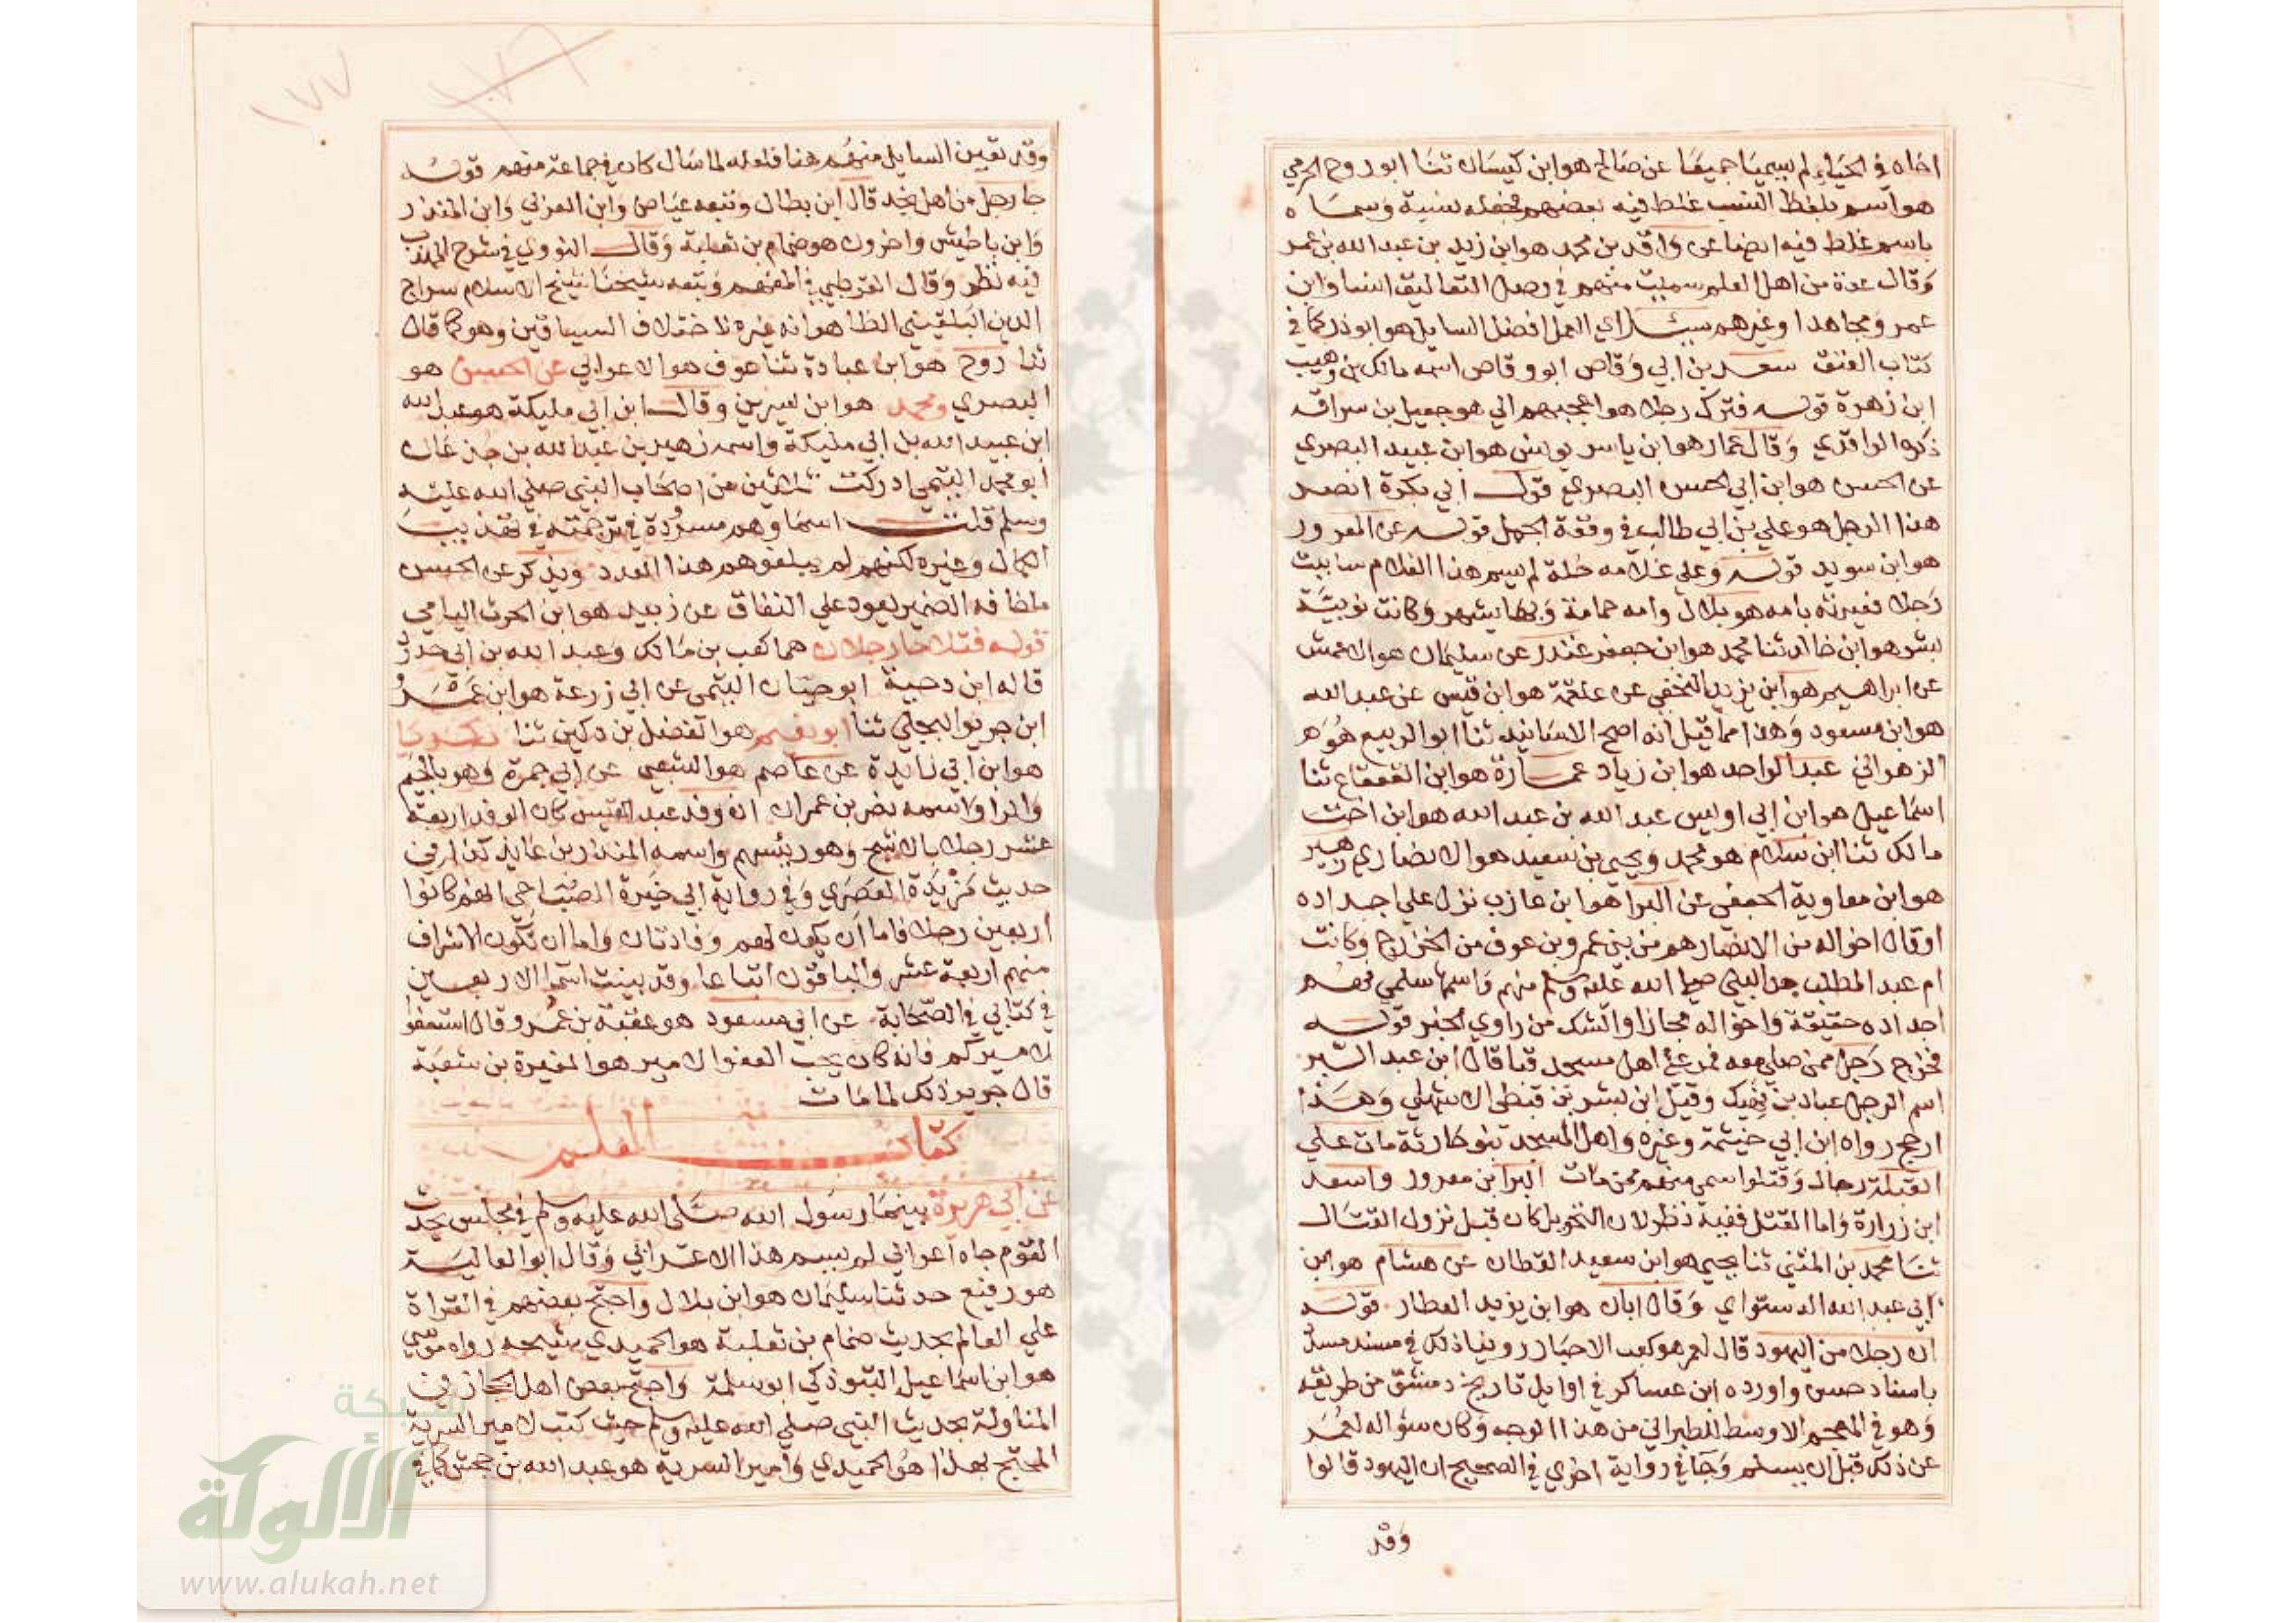 اخاه في الحياء لم يسميا جميعا عن صالح هو ابن كيسان ثنا ابو روح الحرمي
هو اسم بلفظ النسب غلط فيه بعضهم فجعله نسبة وسماه
باسم غلط فيه ايضا عن واقد بن محمد هو ابن زيد بن عبد الله بن عمر
وقال عدة من اهل العلم سميت منهم في وصل التعاليق انسا وابن
عمر ومجاهدا وغيرهم سئل اي العمل افضل السايل هو ابو ذر كما في
كتاب العتق سعد بن ابي وقاص ابو وقاص اسمه مالك بن وهيب
ابن زهرة قوله فترك رجلا هو اعجبهم الي هو جعيل بن سراقه
ذكره الواقدي وقال عمار هو ابن ياسر يونس هو ابن عبيد البصري
عن الحسن هو ابن ابي الحسن البصري قوله ابي بكرة انصر
هذا الرجل هو علي بن ابي طالب في وقعة الجمل قوله عن المعرور
هو ابن سويد قوله وعلي غلامه حلة لم يسم هذا الغلام ساببت
رجلا فعيرته بامه هو بلال وامه حمامة وبها يشهر وكانت نوبية
بشر هو ابن خالد ثنا محمد هو ابن جعفر غندر عن سليمان هو الاعمش
عن ابراهيم هو ابن يزيد النخعي عن علقمة هو ابن قيس عن عبد الله
هو ابن مسعود وهذا مما قيل انه اصح الاسانيد ثنا ابو الربيع هو
الزهراني عبد الواحد هو ابن زياد عمارة هو ابن القعقاع ثنا
اسماعيل هو ابن ابي اويس عبد الله بن عبد الله هو ابن اخت
مالك ثنا ابن سلام هو محمد ويحيى بن سعيد هو الانصاري زهير
هو ابن معاوية الجعفي عن البرا هو ابن عازب نزل علي اجداده
او قال اخواله من الانصار هم من بني عمرو بن عوف من الخزرج وكانت
ام عبد المطلب جد النبي صلي الله عليه وسلم منهم واسمها سلمي فهم
اجداده حقيقة واخواله مجازا والشك من راوي الخبر قوله
فخرج رجل ممن صلي معه فمر علي اهل مسجد قبا قال ابن عبد البر
اسم الرجل عباد بن نهيك وقيل ابن بشر بن قيظي الاشهلي وهذا
ارجح رواه ابن ابي خيثمة وغيره واهل المسجد بنو حارثة مات علي
القبلة رجال وقتلوا سمي منهم ممن مات البرا بن معرور واسعد
ابن زرارة واما القتل ففيه نظر لان التحويل كان قبل نزول القتال
ثنا محمد بن المثني ثنا يحيى هو ابن سعيد القطان عن هشام هو ابن
ابي عبد الله الدستواي وقال ابان هو ابن يزيد العطار قوله
ان رجلا من اليهود قال لعمر هو كعب الاحبار روينا ذلك في مسند مسدد
باسناد حسن واورده ابن عساكر في اوايل تاريخ دمشق من طريقه
وهو في المعجم الاوسط للطبراني من هذا الوجه وكان سؤاله لعمر
عن ذلك قبل ان يسلم وجا في رواية اخري في الصحيح ان اليهود قالوا
وقد
١٧٧
وقد تعين السايل منهم هنا فلعله لما سال كان في جماعة منهم قوله
جا رجل من اهل نجد قال ابن بطال وتبعه عياض وابن العربي وابن المنذر
وابن باطيش واخرون هو ضمام بن ثعلبة وقال النووي في شرح المهذب
فيه نظر وقال القرطبي في المفهم وتبعه شيخنا شيخ الاسلام سراج
الدين البلقيني الظاهر انه غيره لاختلاف السياقين وهو كما قال
ثنا روح هو ابن عبادة ثنا عوف هو الاعرابي عن الحسن هو
البصري ومحمد هو ابن سيرين وقال ابن ابي مليكة هو عبد الله
ابن عبيد الله بن ابي مليكة واسمه زهير بن عبد الله بن جدعان
ابو محمد التيمي ادركت ثلاثين من اصحاب النبي صلي الله عليه
وسلم قلت اسماوهم مسرودة في ترجمته في تهذيب
الكمال وغيره لكنهم لم يبلغوهم هذا العدد ويذكر عن الحسن
ما خافه الضمير يعود علي النفاق عن زبيد هو ابن الحرث اليامي
قوله فتلاحا رجلان هما كعب بن مالك وعبد الله بن ابي حدرد
قاله ابن دحية ابو حيان التيمي عن ابي زرعة هو ابن عمرو
ابن جرير البجلي ثنا ابو نعيم هو الفضل بن دكين ثنا زكريا
هو ابن ابي زايدة عن عاصم هو الشعبي عن ابي جمرة وهو بالجيم
والرا واسمه نصر بن عمران ان وفد عبد القيس كان الوفد اربعة
عشر رجلا بالاشج وهو رئيسهم واسمه المنذر بن عايذ كذا في
حديث مزيدة العصري وفي رواية ابي خيرة الصباحي انهم كانوا
اربعين رجلا فاما ان يكون لهم وفادتان واما ان تكون الاشراف
منهم اربعة عشر والباقون اتباعا وقد بينت اسما الاربعين
في كتابي في الصحابة عن ابي مسعود هو عقبة بن عمرو قال استعفوا
لاميركم فانه كان يحب العفو الامير هو المغيرة بن شعبة
قال جرير ذلك لما مات
كتاب العلم
عن ابي هريرة بينما رسول الله صلى الله عليه وسلم في مجلس يحدث
القوم جاه اعرابي لم يسم هذا الاعرابي وقال ابو العالية
هو رفيع حدثنا سليمان هو ابن بلال واحتج بعضهم في القراة
علي العالم بحديث ضمام بن ثعلبة هو الحميدي شيخه رواه موسي
هو ابن اسماعيل التبوذكي ابو سلمة واحتج بعض اهل الحجاز في
المناولة بحديث النبي صلي الله عليه وسلم حيث كتب لامير السرية
المحتج بهذا هو الحميدي وامير السرية هو عبد الله بن جحش كما في
شبكة
الألوكة
www.alukah.net